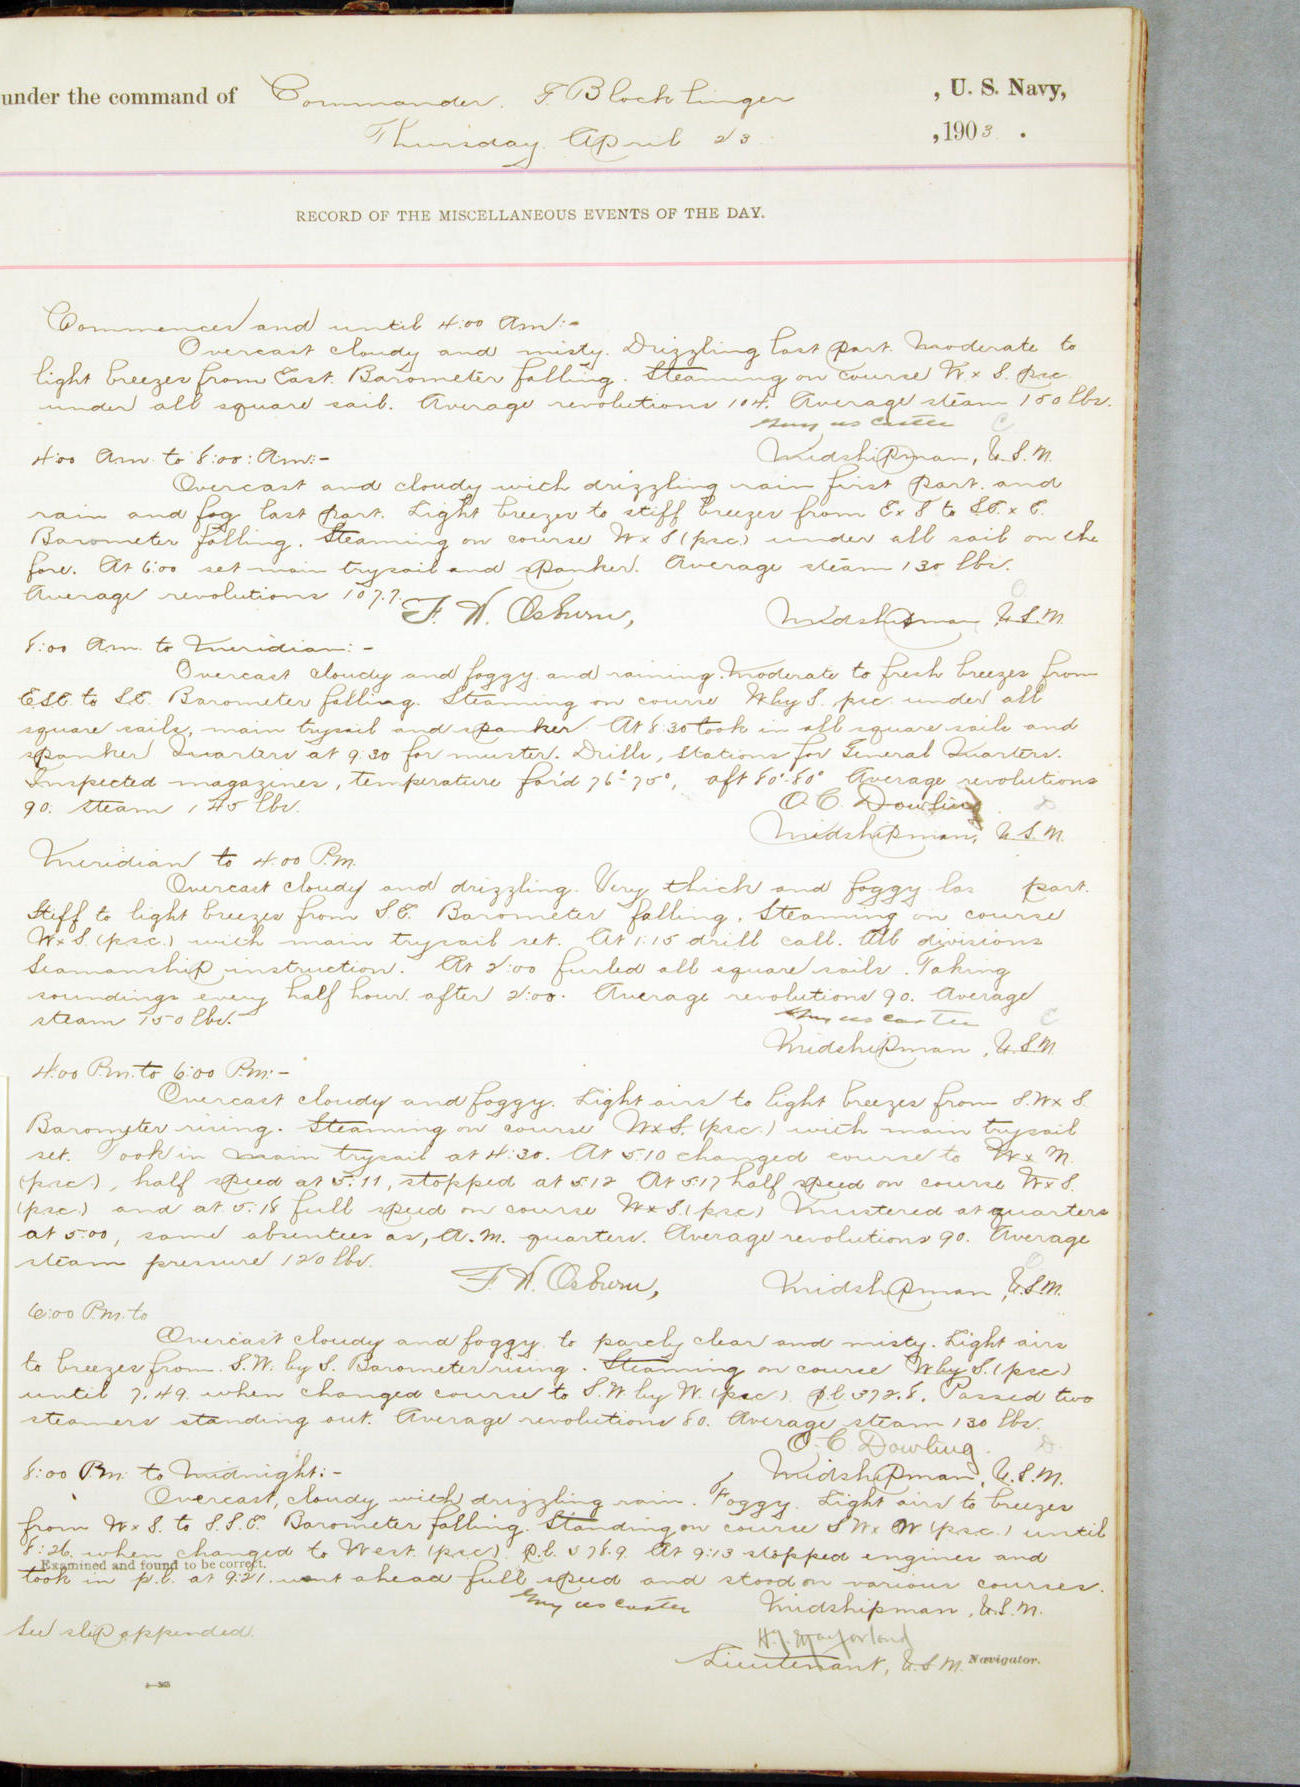 under the command of Commander. F. Blocklinger, U. S. Navy,
Thursday April 23, 1903.
RECORD OF THE MISCELLANEOUS EVENTS OF THE DAY.
Commences and until 4:00 Am:-
Overcast cloudy and misty. Drizzling last part. Moderate to
light breezes from East. Barometer falling. Steaming on course W x S. psc.
under all square sail. Average revolutions 104. Average steam 150 lbs.
4:00 Am to 8:00: Am:-
Midshipman, U.S.N.
Overcast and cloudy with drizzling rain first part. and
rain and fog last part. Light breezes to stiff breezes from E x S to SE. x E.
Barometer falling. Steaming on course W x S (psc.) under all sail on the
fore. At 6:00 set main trysail and spanker. Average steam 130 lbs.
Average revolutions 107.7.
F. W. Osburn, Midshipman U.S.N.
8:00 Am. to Meridian:-
Overcast cloudy and foggy and raining. Moderate to fresh breezes from
ESE. to SE. Barometer falling. Steaming on course W by S. psc. under all
square sails, main trysail and spanker. At 8:30 took in all square sails and
spanker. Quarters at 9.30 for muster. Drills, Stations for General Quarters.
Inspected magazines, temperature for'd 76°-75°, aft 80°-80° Average revolutions
90. Steam 145 lbs.
O. C. Dowling
Midshipman, U.S.N.
Meridian to 4:00 P.M.
Overcast cloudy and drizzling. Very thick and foggy las part.
Stiff to light breezes from S.E. Barometer falling. Steaming on course
W x S. (psc.) with main trysail set. At 1:15 drill call. All divisions
Seamanship instruction. At 2:00 furled all square sails. Taking
soundings every half hour after 2:00. Average revolutions 90. Average
steam 150 lbs.
Midshipman, U.S.N.
4:00 P.m. to 6:00 P.M:-
Overcast cloudy and foggy. Light airs to light breezes from S.W x S.
Barometer rising. Steaming on course W x S. (psc.) with main trysail
set. Took in main trysail at 4:30. At 5:10 changed course to W x N.
(psc.), half speed at 5:11, stopped at 5:12 At 5:17 half speed on course W x S.
(psc.) and at 5:18 full speed on course W x S (psc) Mustered at quarters
at 5:00, same absentees as, A.M. quarters. Average revolutions 90. Average
steam pressure 120 lbs.
F. W. Osburn, Midshipman, U.S.N.
6:00 P.m. to
Overcast cloudy and foggy to parcly clear and misty. Light airs
to breezes from S.W. by S. Barometer rising. Steaming on course W by S. (psc)
until 7.49. when changed course to S.W. by W. (psc). pl 572.8. Passed two
steamers standing out. Average revolutions 80. Average steam 130 lbs.
O. C. Dowling.
8:00 Pm. to Midnight:-
Midshipman, U.S.N.
Overcast, cloudy with drizzling rain. Foggy. Light airs to breezes
from W x S. to S.S.E. Barometer falling. Standing on course SW x W (psc.) until
8:26. when changed to West. (psc). p.l. 578.9. At 9:13 stopped engines and
Examined and found to be correct.
took in p.l. at 9:21. went ahead full speed and stood on various courses.
Midshipman, U.S.N.
See slip appended.
Lieutenant, U.S.N. Navigator.